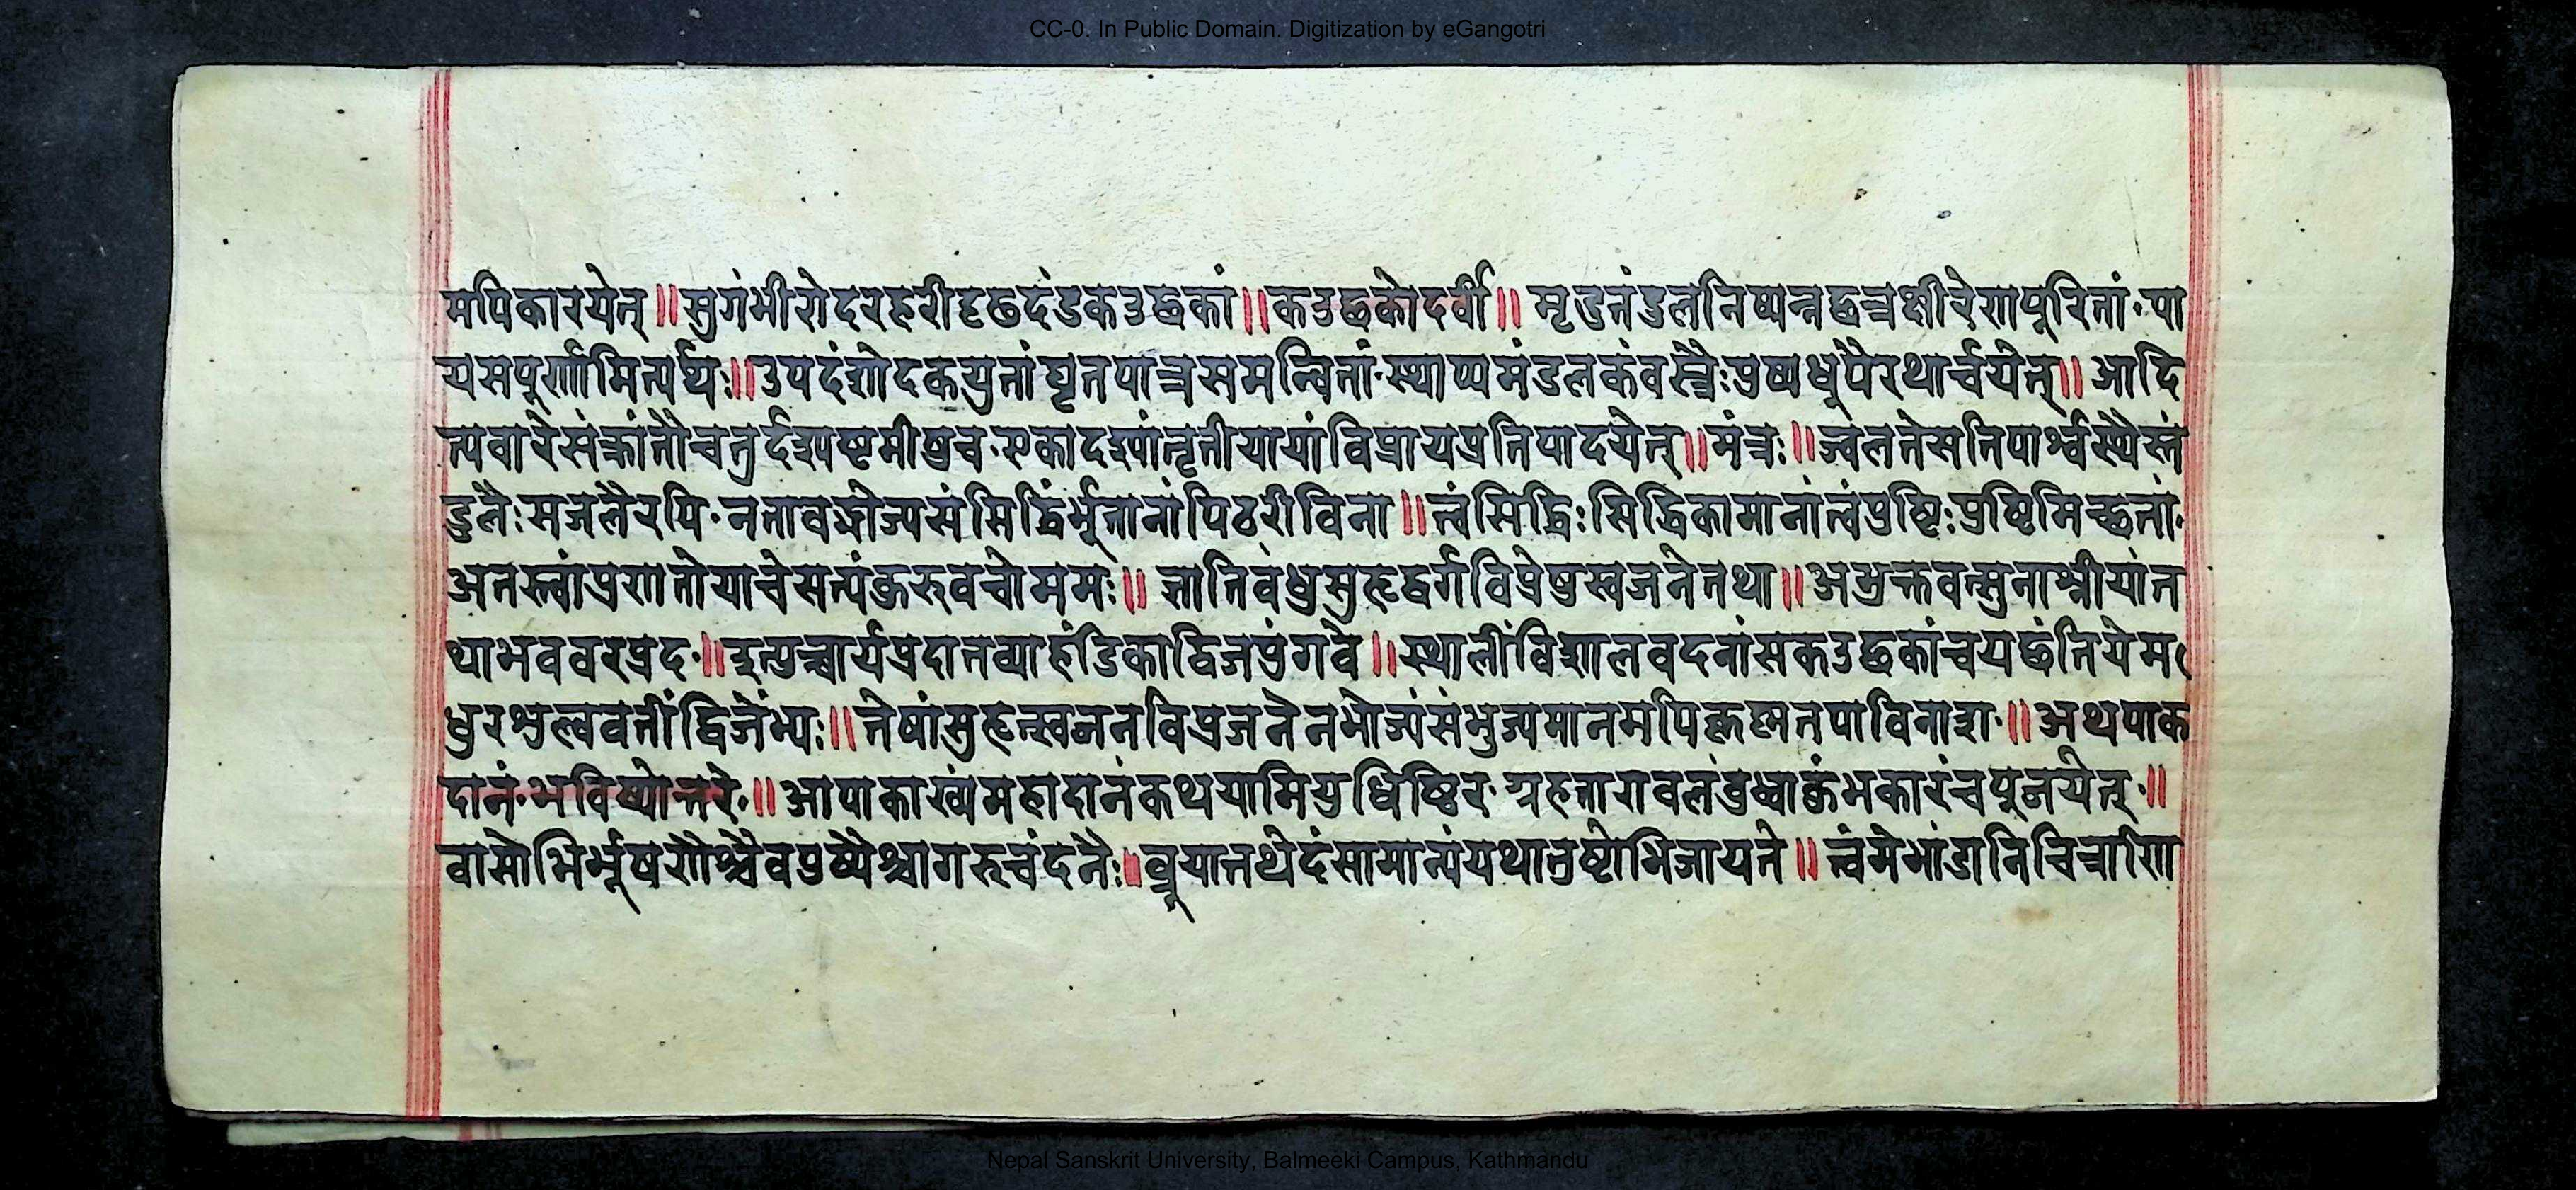 CC-0. In Public Domain. Digitization by eGangotri
मपिकारयेत्॥सुगंभीरोदरहरीदृढदंडकडछकां॥कडछकोदर्वी॥ मृडतंडुलनिष्पन्नछत्रक्षीरेणपूरितां·पा
यसपूर्णामित्यर्थः॥उपदंशोदकयुतांघृतपात्रसमन्वितां·स्थाप्यमंडलकंवस्त्रैःपुष्पधूपैरथार्चयेत्॥ आदि
त्यवारेसंक्रांतौचतुर्दश्यष्टमीषुच·एकादश्यांतृतीयायांविप्रायप्रतिपादयेत्॥मंत्रः॥ज्वलनेसतिपार्श्वस्थैस्तं
डुलैःसजलैरपि·नतावद्भोज्यसंमिद्धिर्भूतानांपिठरींविना॥त्वंसिद्धिःसिद्धिकामानांत्वंपुष्टिःपुष्टिमिच्छतां·
अतस्त्वांप्रणतोयाचेसत्यंकुरुवचोममः॥ ज्ञातिबंधुसुहृद्वर्गविप्रेषुस्वजनेतथा॥अभुक्तवत्सुनाश्नीयांत
थाभववरप्रद·॥इत्युच्चार्यप्रदातव्याहंडिकाद्विजपुंगवे॥स्थालींविशालवदनांसकडछकांचयछंतियेम
धुरशुल्ववतींद्विजेभ्यः॥तेषांसुहृत्स्वजनविप्रजनेनभोज्यंसंभुज्यमानमपि पाविनाश·॥अथपाक
दानं·भविष्योत्तरे·॥आपाकाख्यंमहादानंकथयामियुधिष्ठिर· चपूजयेत्·॥
वासोभिर्भूषणैश्चैवपुष्पैश्चागरुचंदनैः॥ब्रूयात्तथेदंसामान्यंयथातुष्टोभिजायते॥ त्वंमेभांडानिचित्राणि
Nepal Sanskrit University, Balmeeki Campus, Kathmandu